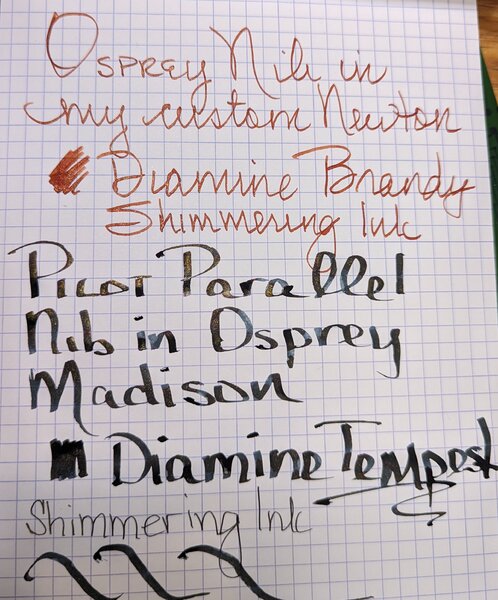 Osprey Nib in
my custom Newton
Diamine Brandy
Shimmering Ink
Pilot Parallel
Nib in Osprey
Madison
Diamine Tempest
Shimmering Ink